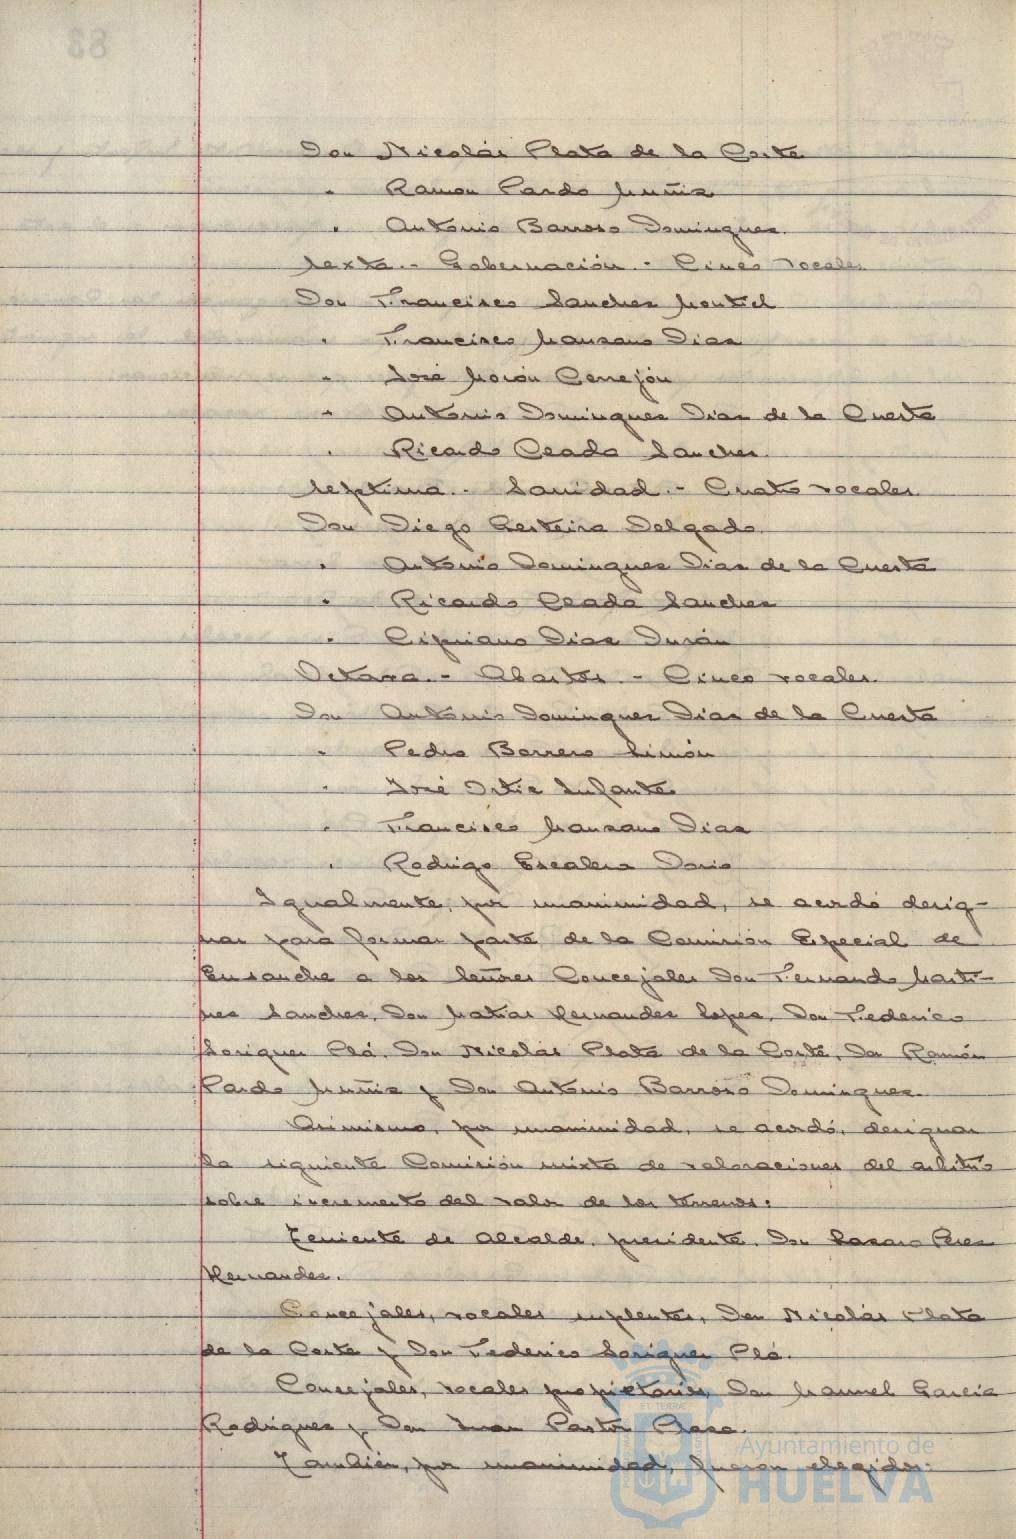 Don Nicolás Plata de la Corte
" Ramon Pardo Muñiz
" Antonio Barroso Dominguez.
Sexta.- Gobernación.- Cinco vocales
Don Francisco Sanchez Montiel
" Francisco Manzano Diaz
" José Morón Cerrejón
" Antonio Dominguez Diaz de la Cuesta
" Ricardo Ceada Sanchez.
Septima.- Sanidad.- Cuatro vocales.
Don Diego Gesteira Delgado
" Antonio Dominguez Diaz de la Cuesta
" Ricardo Ceada Sanchez
" Cipriano Diaz Durán
Octava.- Abastos.- Cinco vocales.
Don Antonio Dominguez Diaz de la Cuesta
" Pedro Borrero Limón
" José Ortiz Infante
" Francisco Manzano Diaz
" Rodrigo Escalera Dario
Igualmente, por unanimidad, se acordó desig-
nar para formar parte de la Comisión Especial de
Ensanche a los Señores Concejales Don Fernando Marti-
nez Sanchez, Don Matias Hernandez Lopez, Don Federico
Soriguer Plá, Don Nicolás Plata de la Corte, Don Ramón
Pardo Muñiz y Don Antonio Barroso Dominguez.
Asimismo, por unanimidad, se acordó, designar
la siguiente Comisión mixta de valoraciones del arbitrio
sobre incremento del valor de los terrenos:
Teniente de Alcalde, presidente, Don Lazaro Perez
Hernandez.
Concejales, vocales suplentes, Don Nicolás Plata
de la Corte y Don Federico Soriguer Plá.
Concejales, vocales propietarios, Don Manuel Garcia
Rodriguez y Don Juan Pastor
Tambien, por unanimidad, fueron elegidos:
Ayuntamiento de
HUELVA